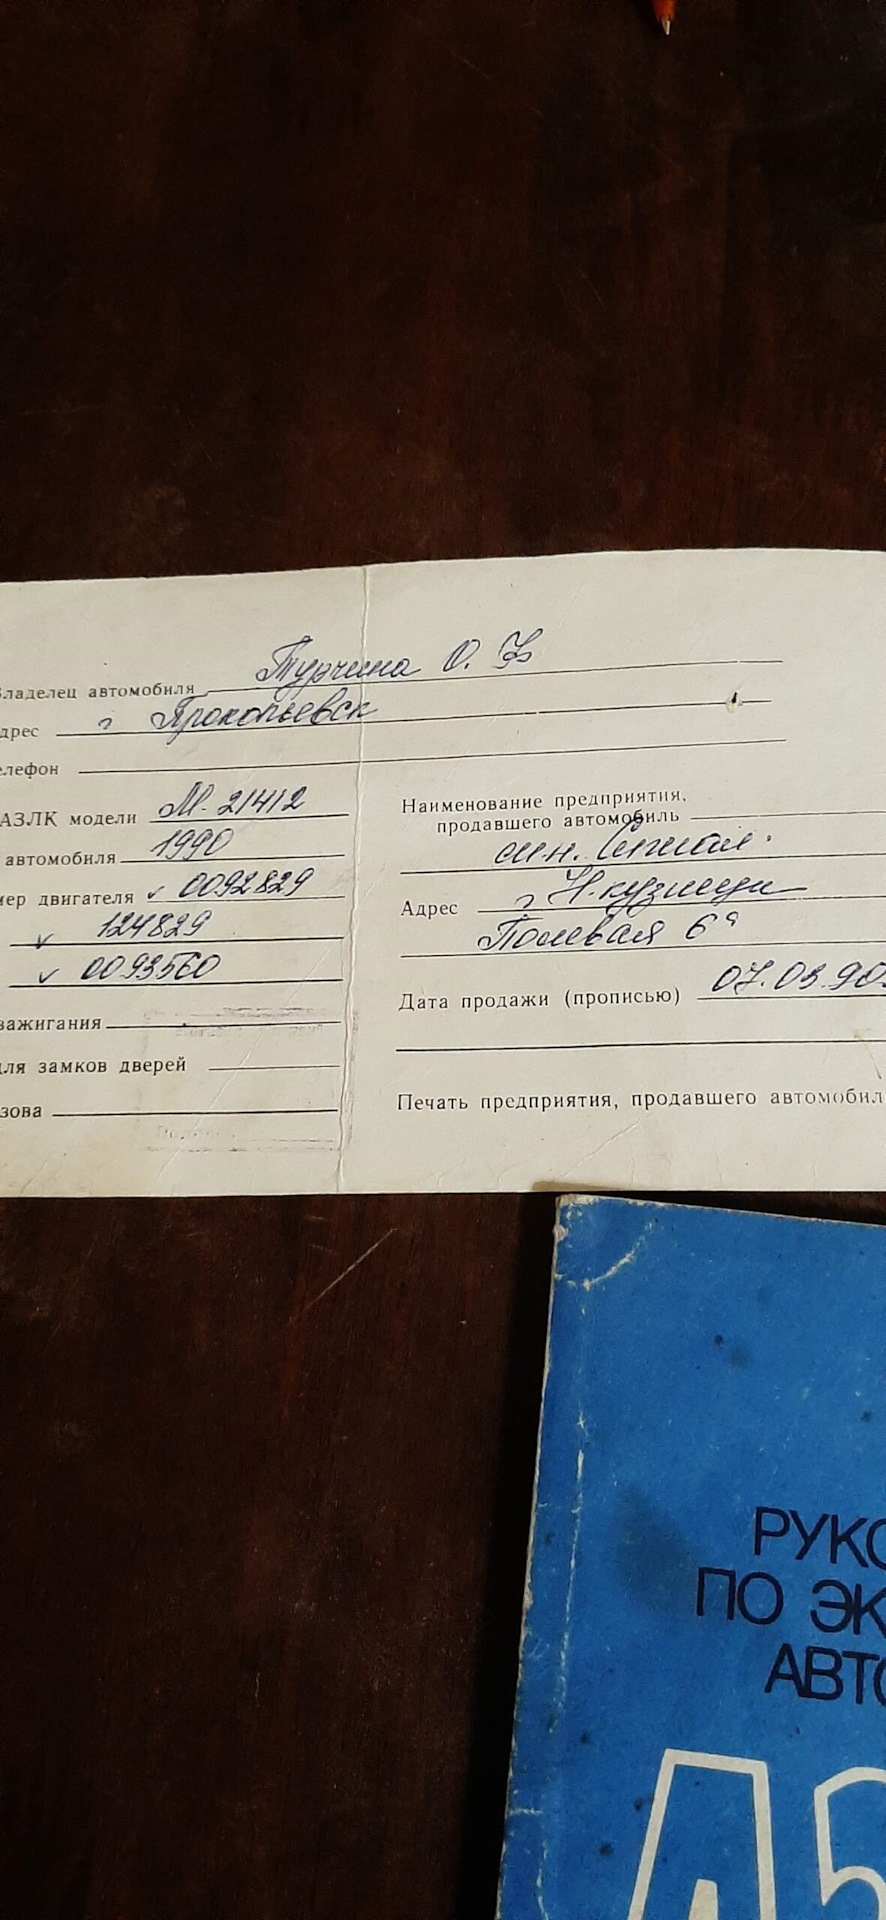 Владелец автомобиля Турчина О.
дрес г Прокопьевск
елефон
АЗЛК модели М-21412
автомобиля 1990
мер двигателя 0092829
124829
0093560
зажигания
для замков дверей
зова
Наименование предприятия,
продавшего автомобиль
Адрес г Н.кузнецк
Полевая 6а
Дата продажи (прописью) 07.03.90
Печать предприятия, продавшего автомобил
РУКО
ПО ЭК
АВТО
АЗ